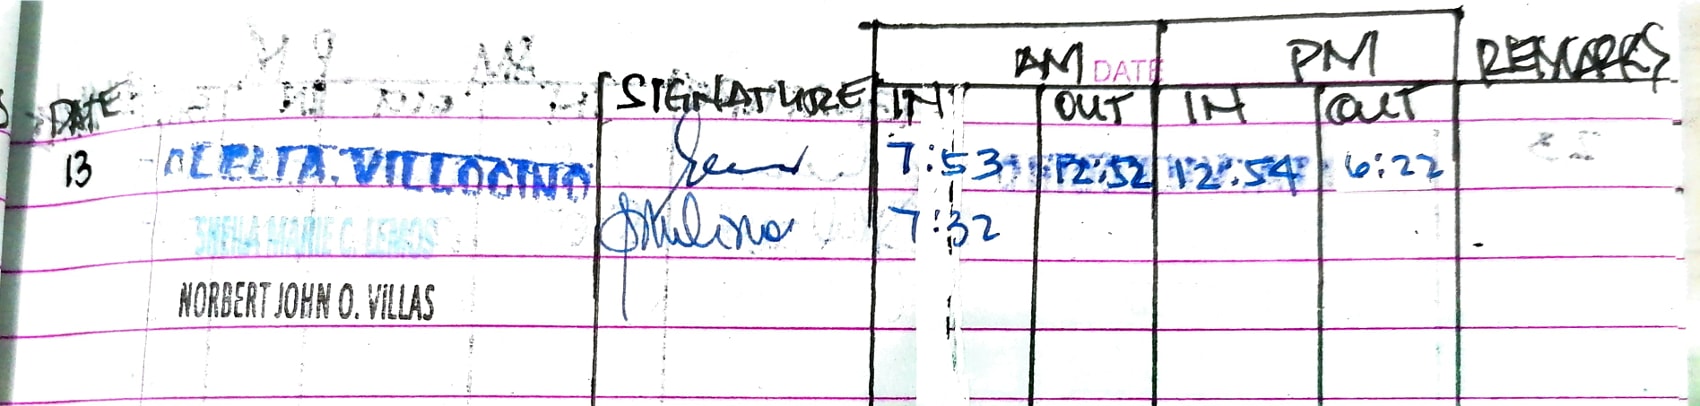 AM DATE PM REMARKS
DATE SIGNATURE IN OUT IN OUT
13 VILLOCINO 7:53 12:52 12:54 6:22
SHEILA MARIE C. LEMOS 7:32
NORBERT JOHN O. VILLAS